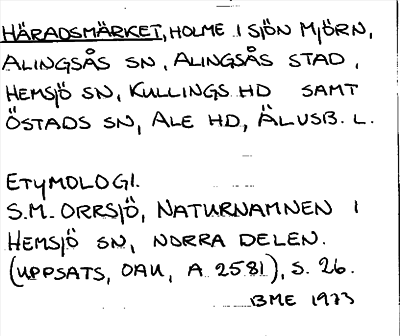 HÄRADSMÄRKET, HOLME I SJÖN MJÖRN,
ALINGSÅS SN, ALINGSÅS STAD,
HEMSJÖ SN, KULLINGS HD SAMT
ÖSTADS SN, ALE HD, ÄLVSB. L.
ETYMOLOGI.
S.M. ORRSJÖ, NATURNAMNEN I
HEMSJÖ SN, NORRA DELEN.
(UPPSATS, OAU, A 2581), S. 26.
BME 1973